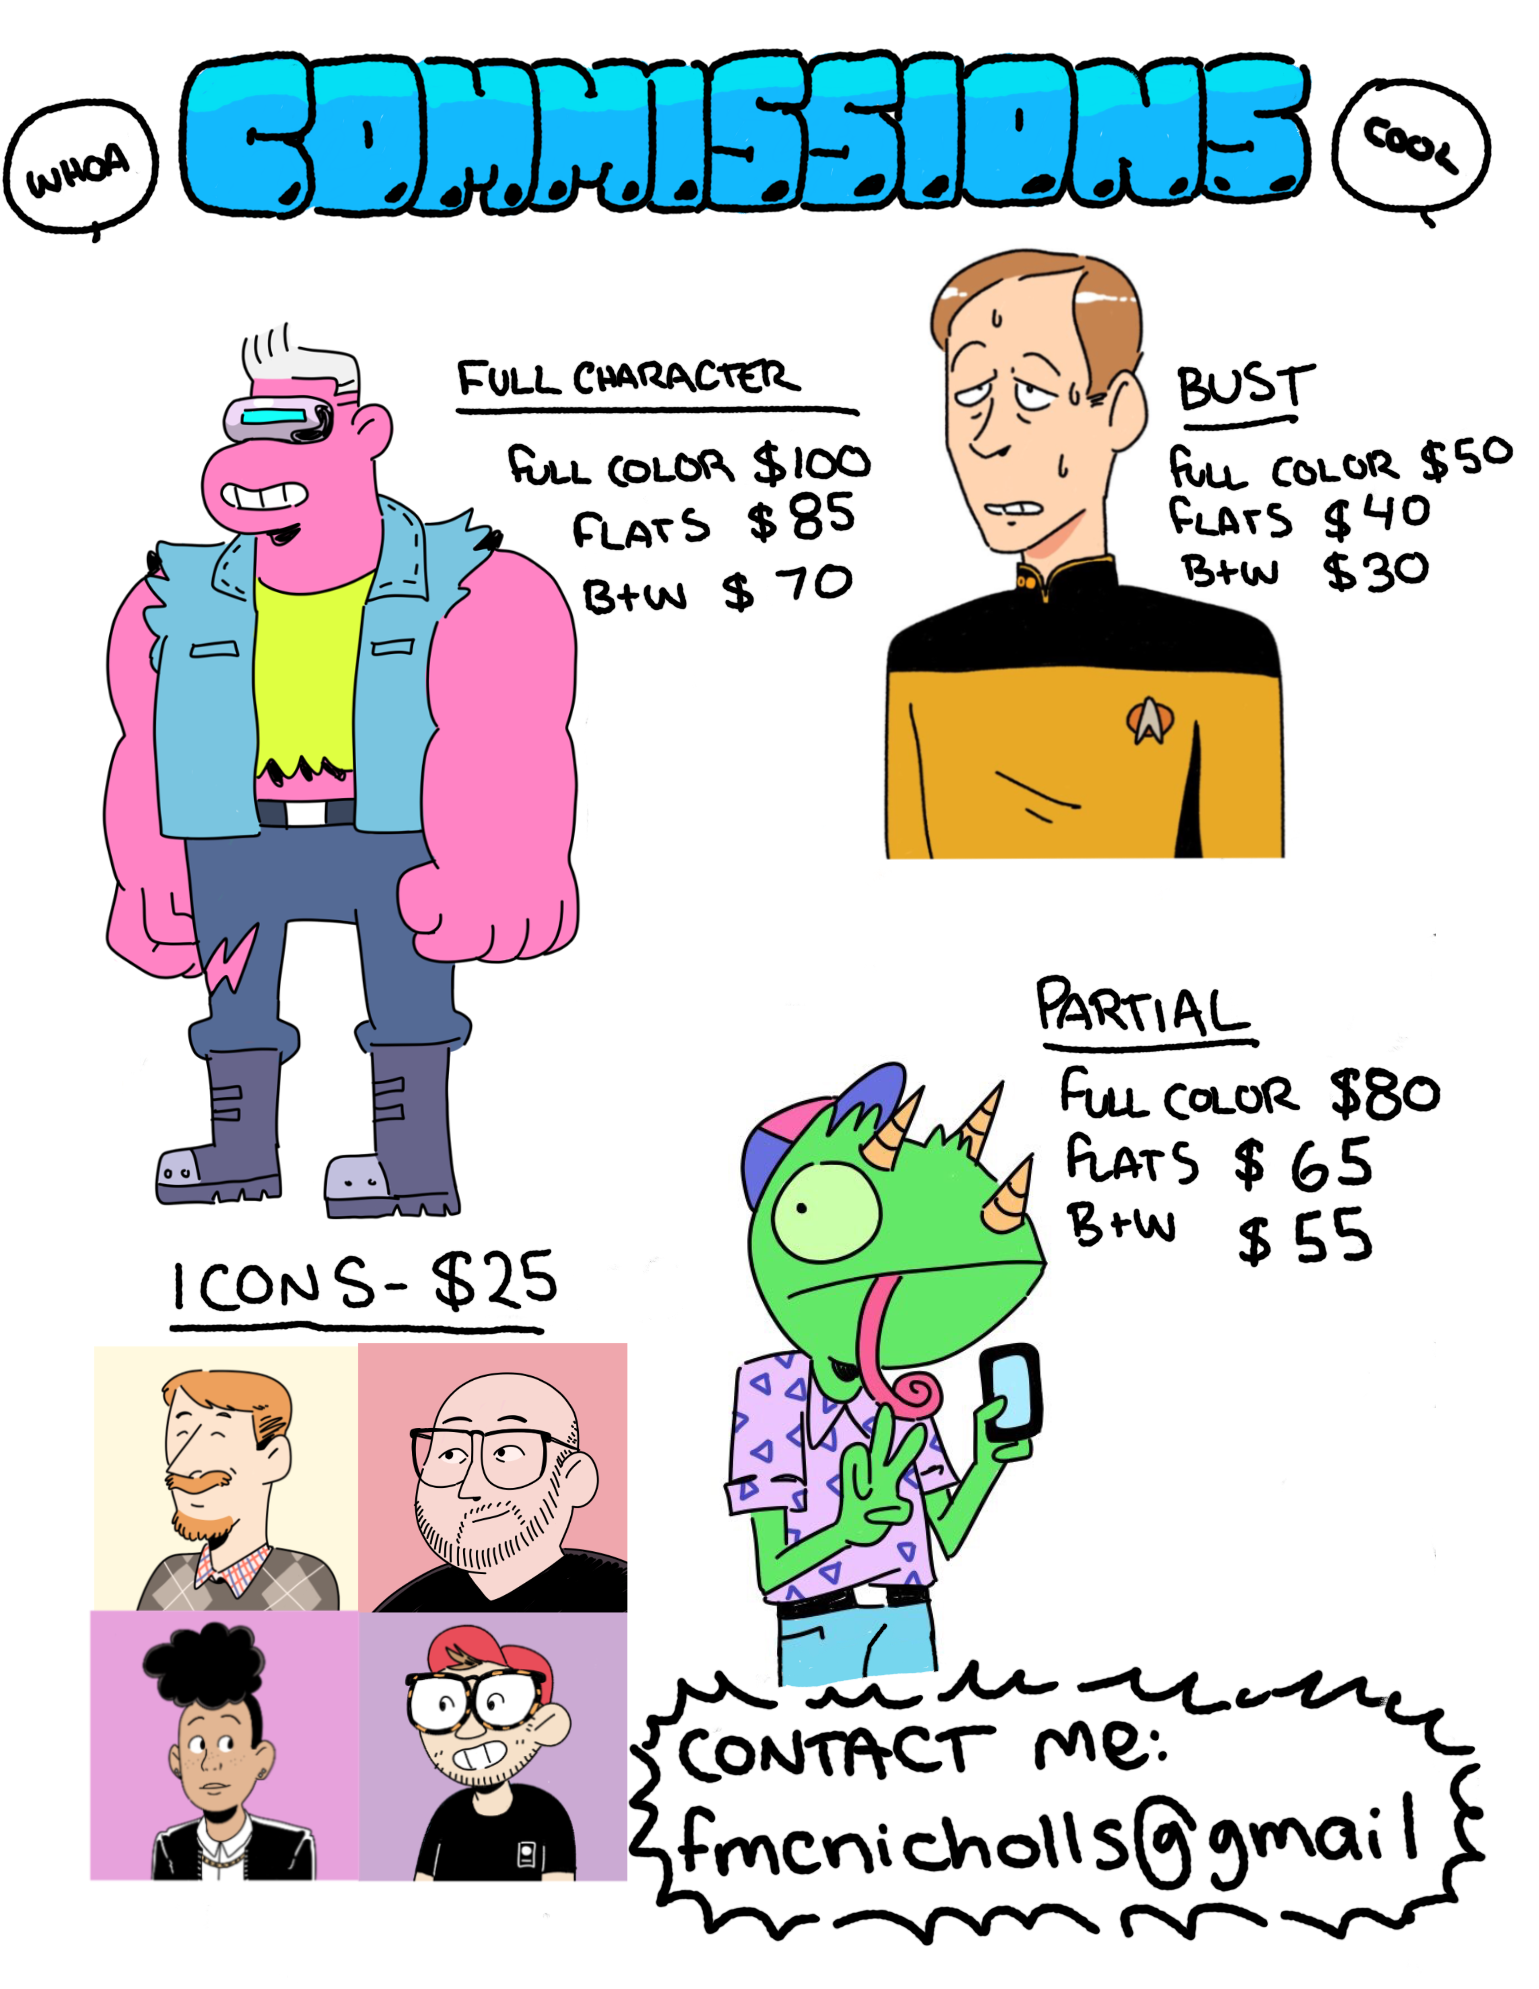 COMMISSIONS
WHOA
COOL
FULL CHARACTER
FULL COLOR $100
FLATS $85
B+W $70
BUST
FULL COLOR $50
FLATS $40
B+W $30
PARTIAL
FULL COLOR $80
FLATS $65
B+W $55
ICONS- $25
CONTACT Me:
fmcnicholls@gmail